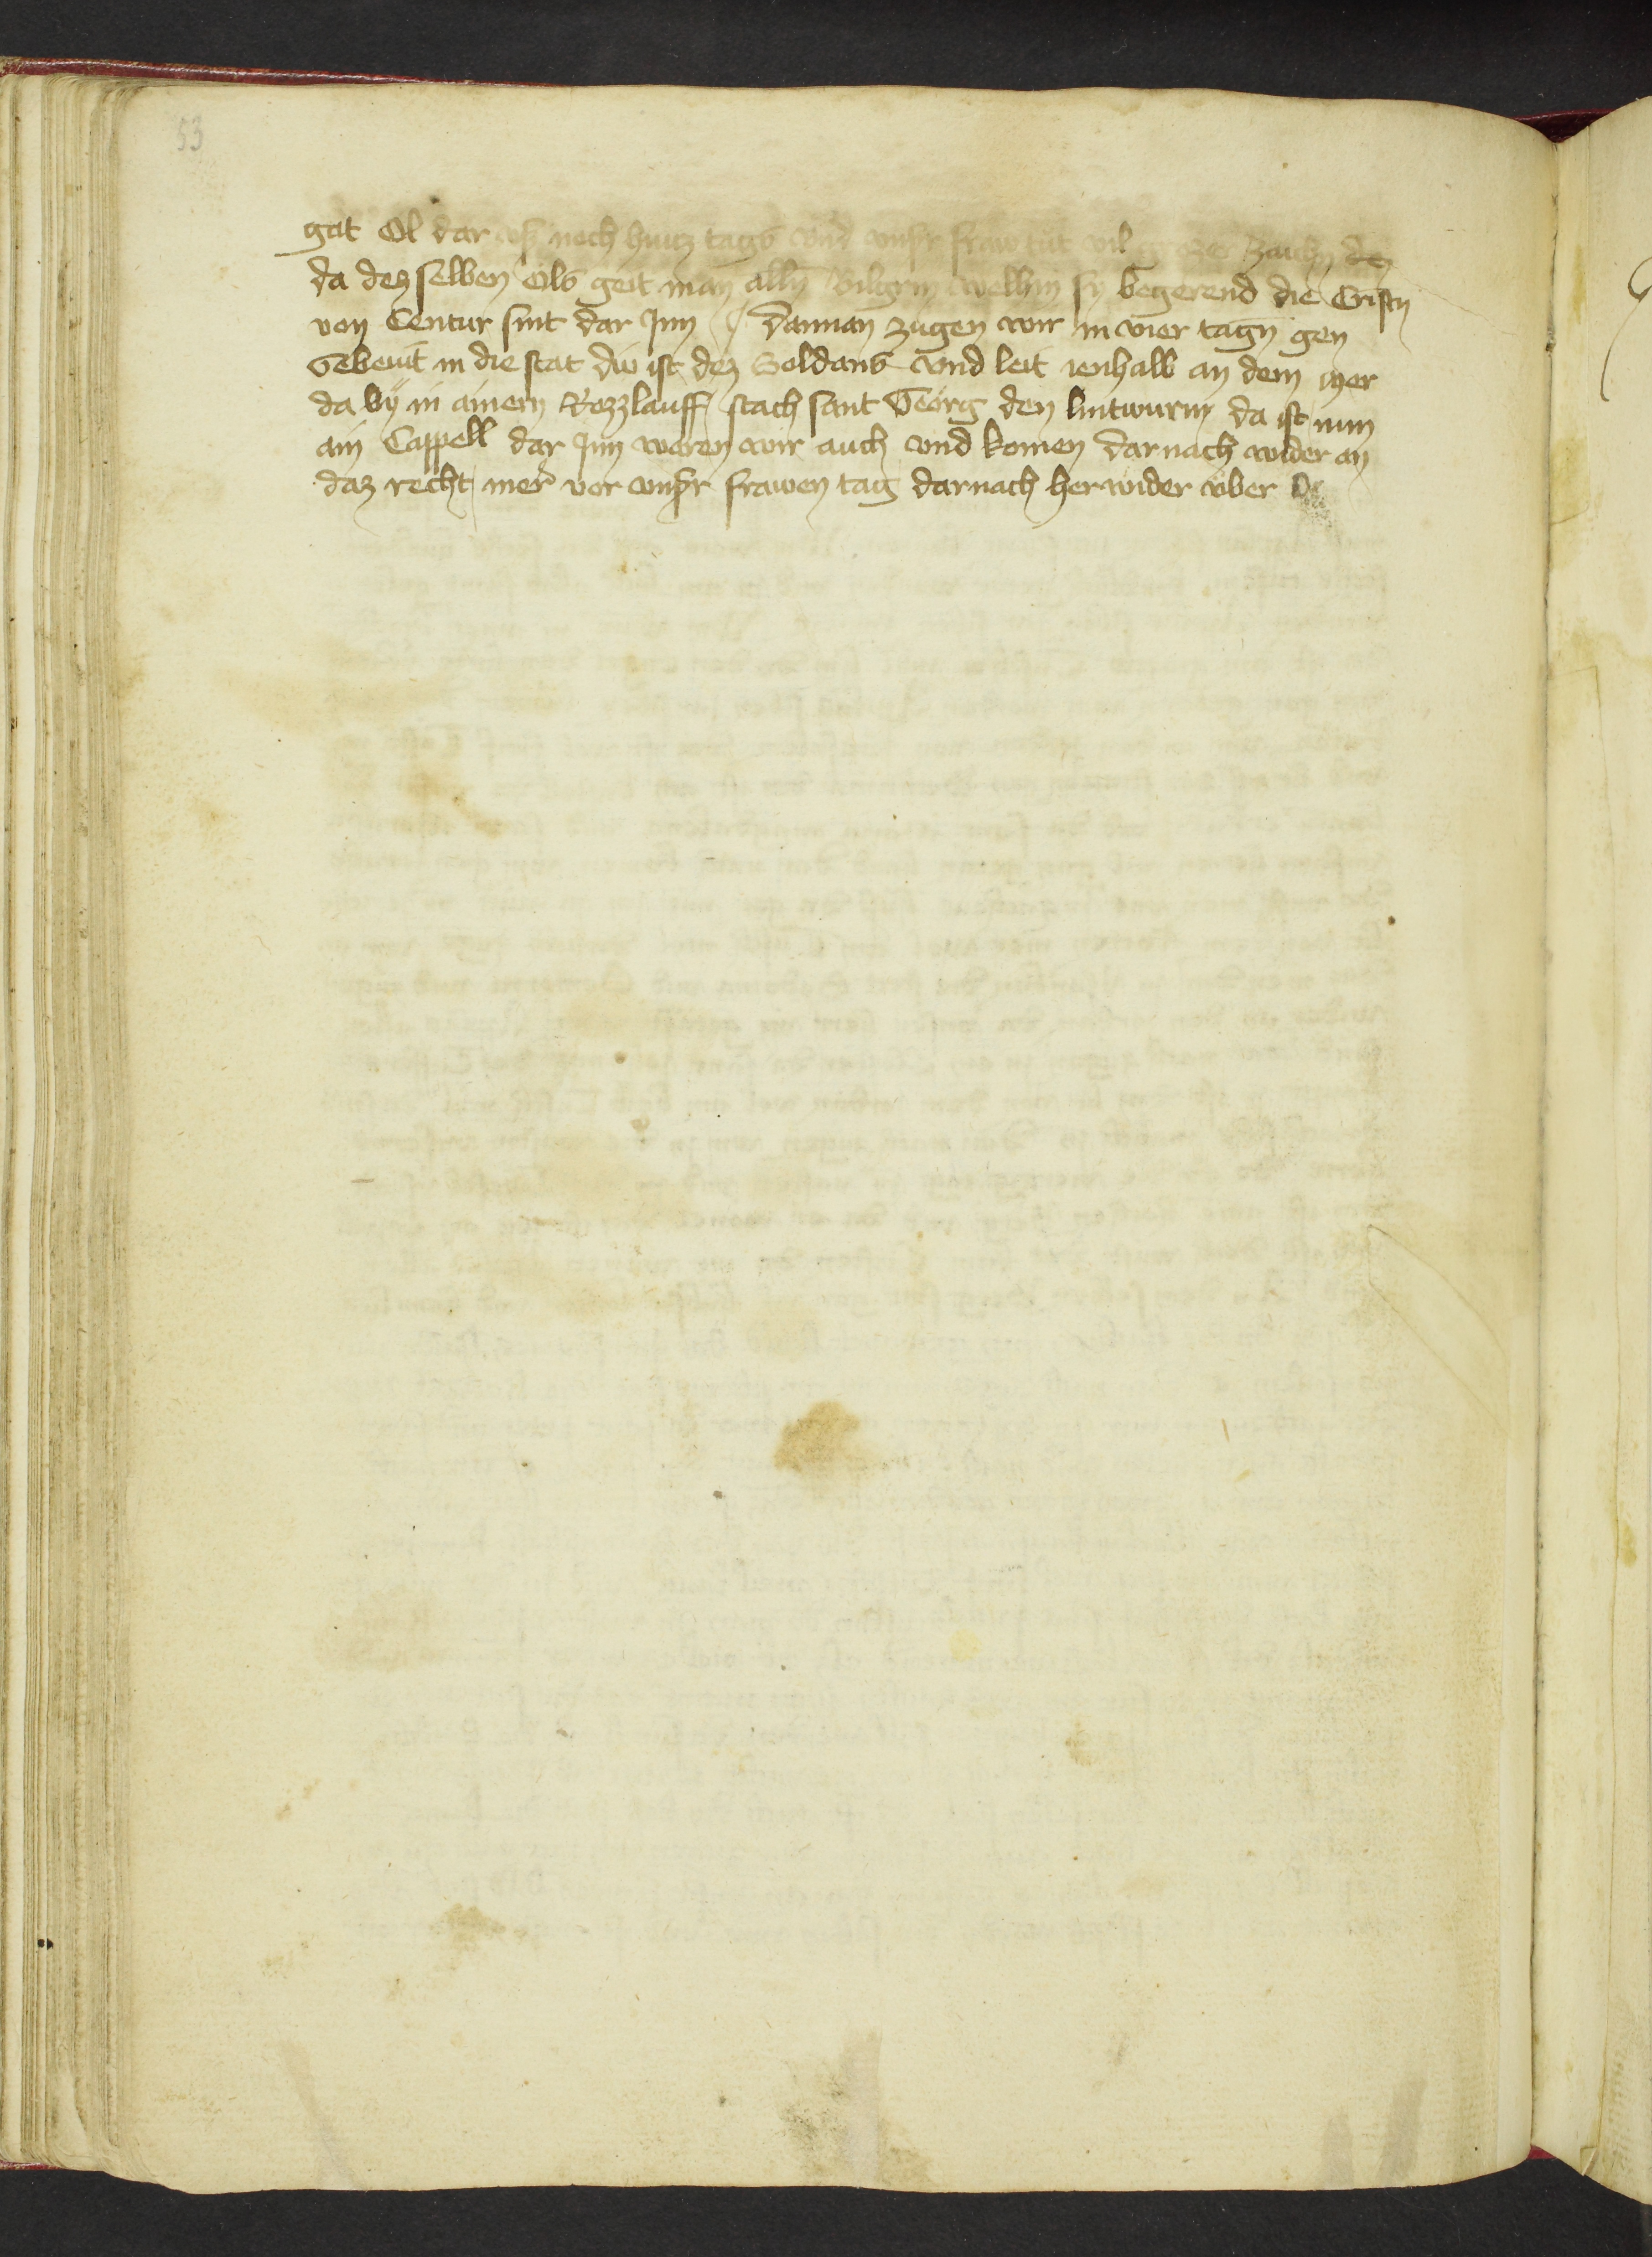 53
gat Öl dar vß noch hüttz tags vnd vnser fraw tüt vil zaichen
da dez selben öls geit man alln̄ bilgrin wellhin sy begerend die Cristn̄
von Centur sint dar Jnn Dannan zugen wir in vier tagn̄ gen
Gebeuit in die stat diu ist dez Soldans vnd leit ienhalb an dem mer
da bÿ in ainem Rozzlauff stach sant Geörg den lintwurm da ist nun
ain Cappell dar Jnn waren wir auch vnd komen darnach wider an
daz recht mer vor vnser frawen tag darnach her wider über